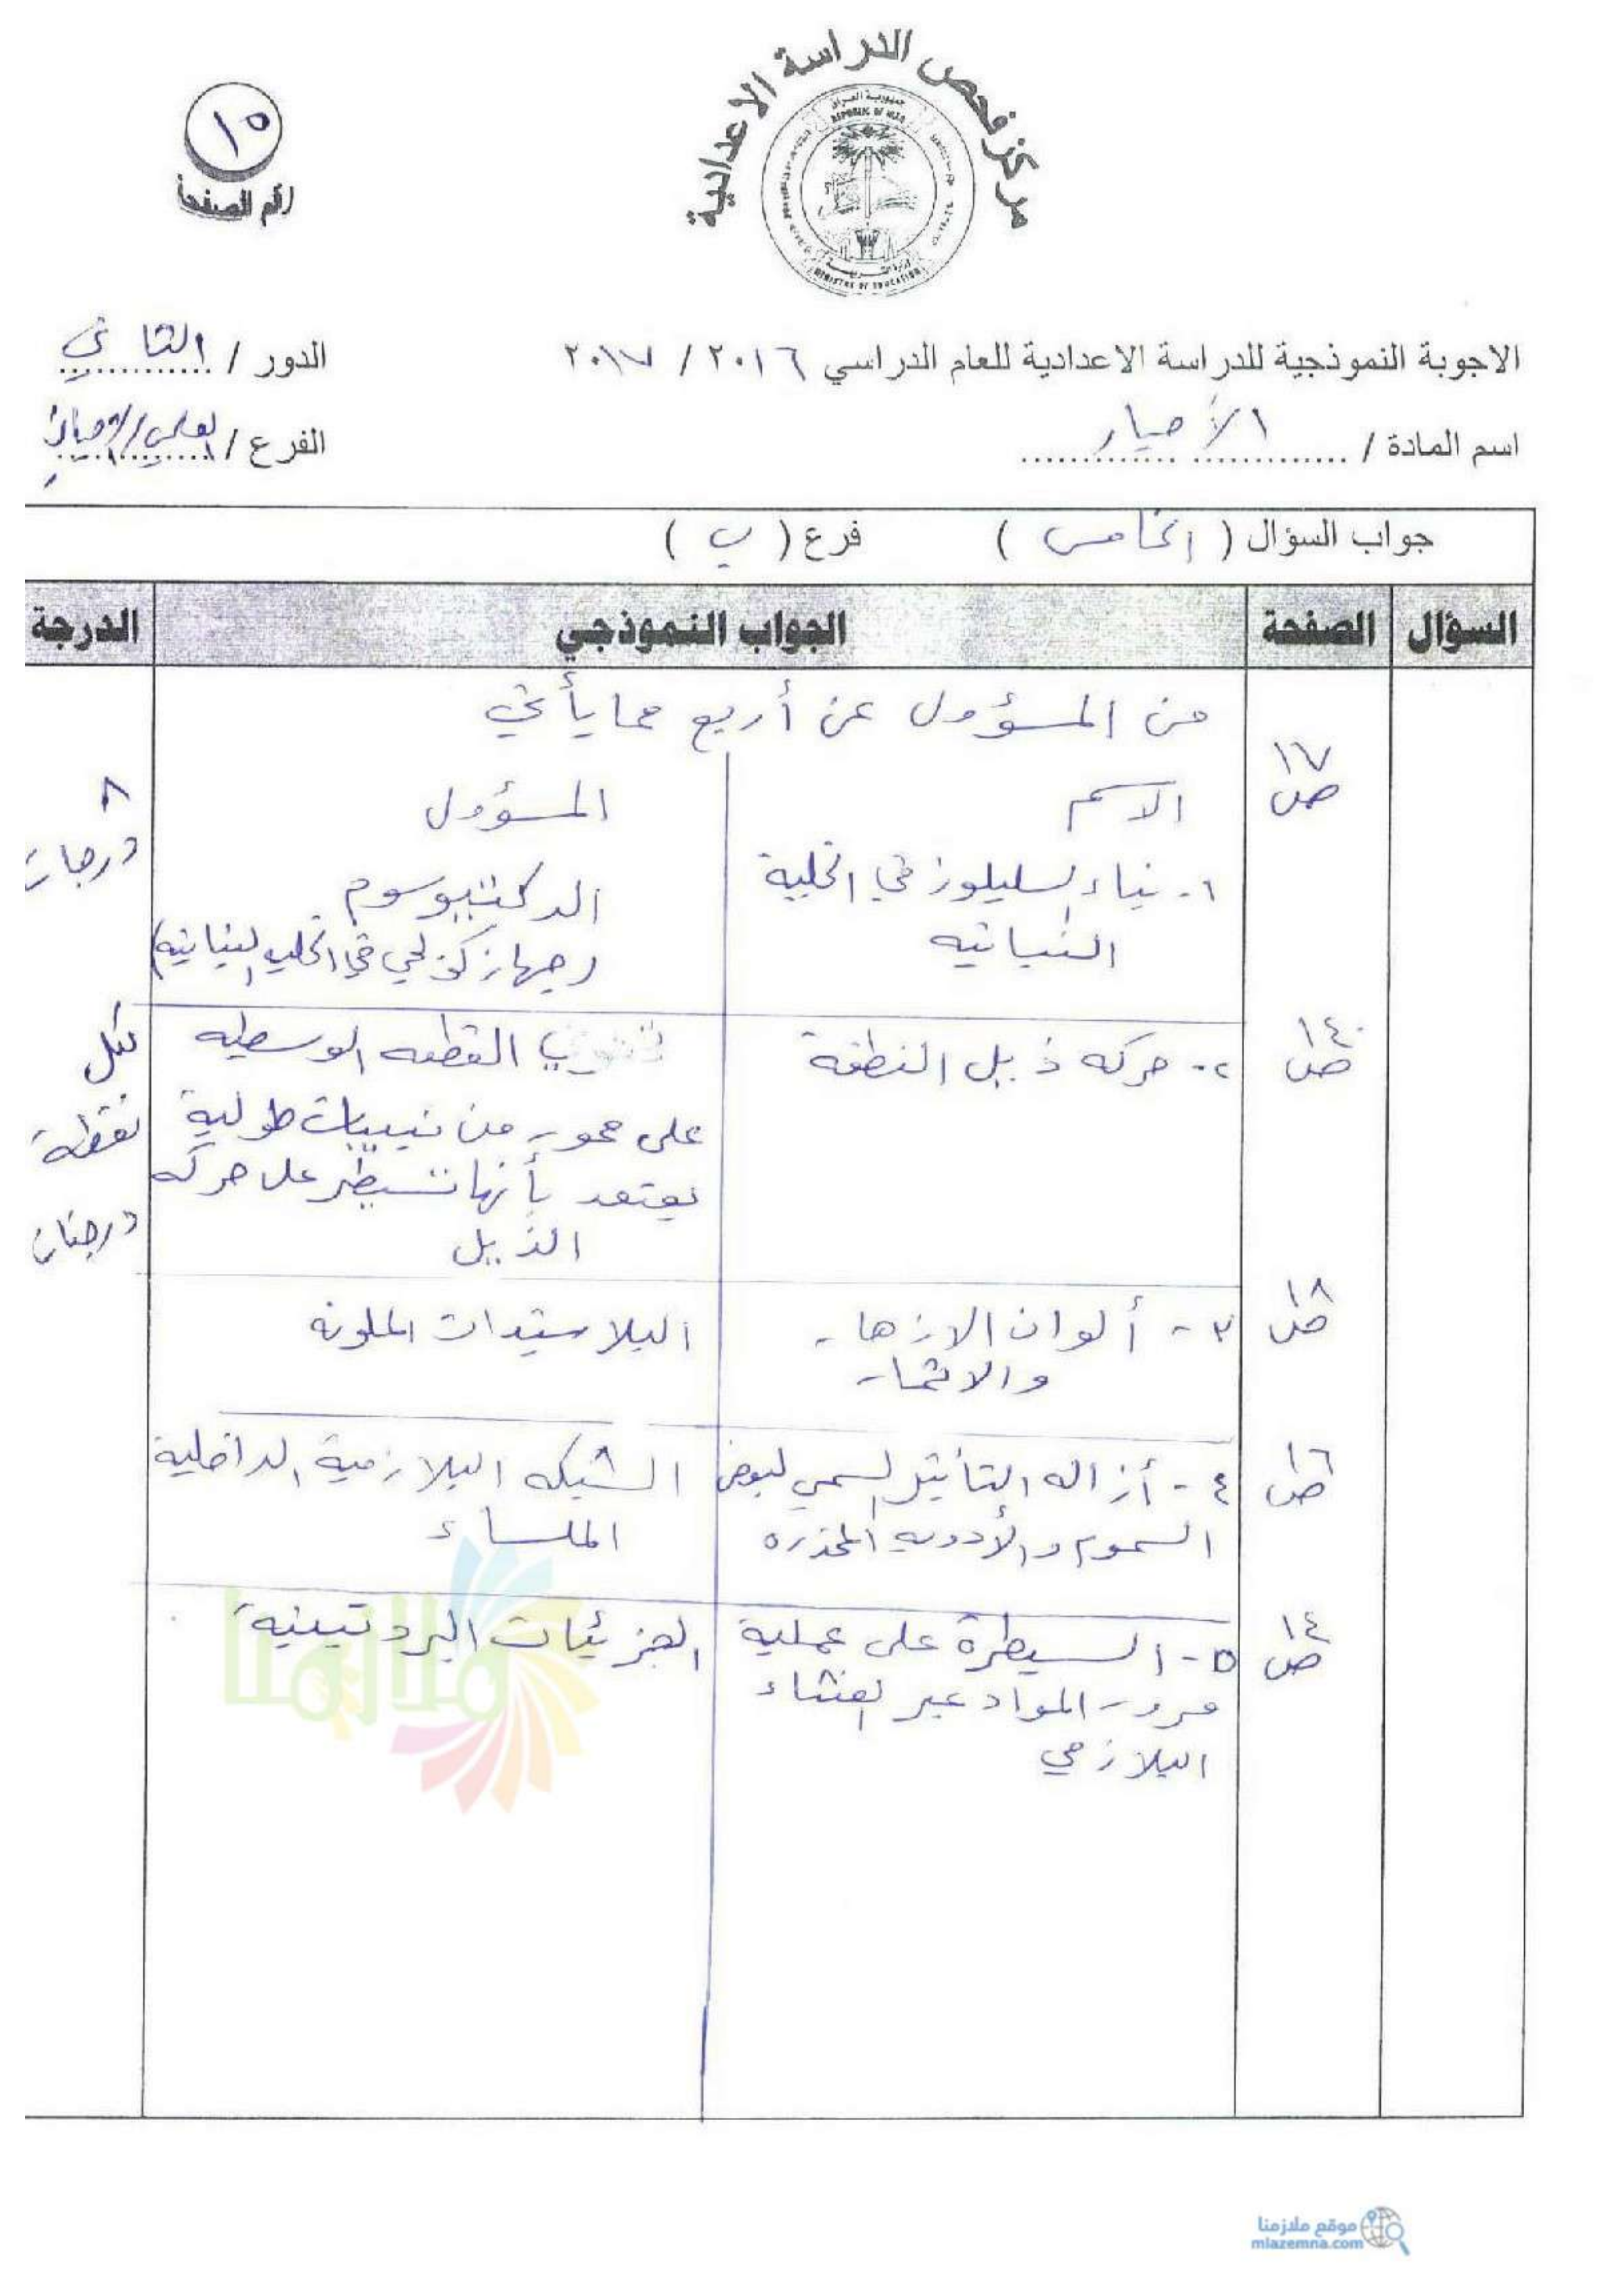 مركز فحص الدراسة الاعدادية
جمهورية العراق
REPUBLIC OF IRAQ
MINISTRY OF EDUCATION
١٥
رقم الصفحة
الاجوبة النموذجية للدراسة الاعدادية للعام الدراسي ٢٠١٦ / ٢٠١٧
الدور / الثاني
اسم المادة / الأحياء
الفرع / العلمي/الاحيائي
جواب السؤال ( الخامس ) فرع ( ب )
السؤال الصفحة الجواب النموذجي الدرجة
من المسؤول عن أربع مما يأتي
ص١٧
الاسم
المسؤول
٨
درجات
١- بناء السليلوز في الخلية
النباتيه
الدكتيوسوم
(جهاز كولجي في الخليه النباتيه)
لكل
نقطة
درجتان
ص١٤٠
٢- حركه ذيل النطفة
تحتوي القطعه الوسطيه
على محور من نبيبات طولية
يعتقد بأنها تسيطر على حركه
الذيل
ص١٨
٣- ألوان الازهار
والاثمار
البلاستيدات الملونه
ص١٦
٤- أزاله التأثير السمي لبعض
السموم والأدويه المخدره
الشبكه البلازمية الداخلية
الملساء
ص١٤
٥- السيطرة على عملية
مرور المواد عبر الغشاء
البلازمي
الجزيئات البروتينية
ملازمنا
موقع ملازمنا
mlazemna.com